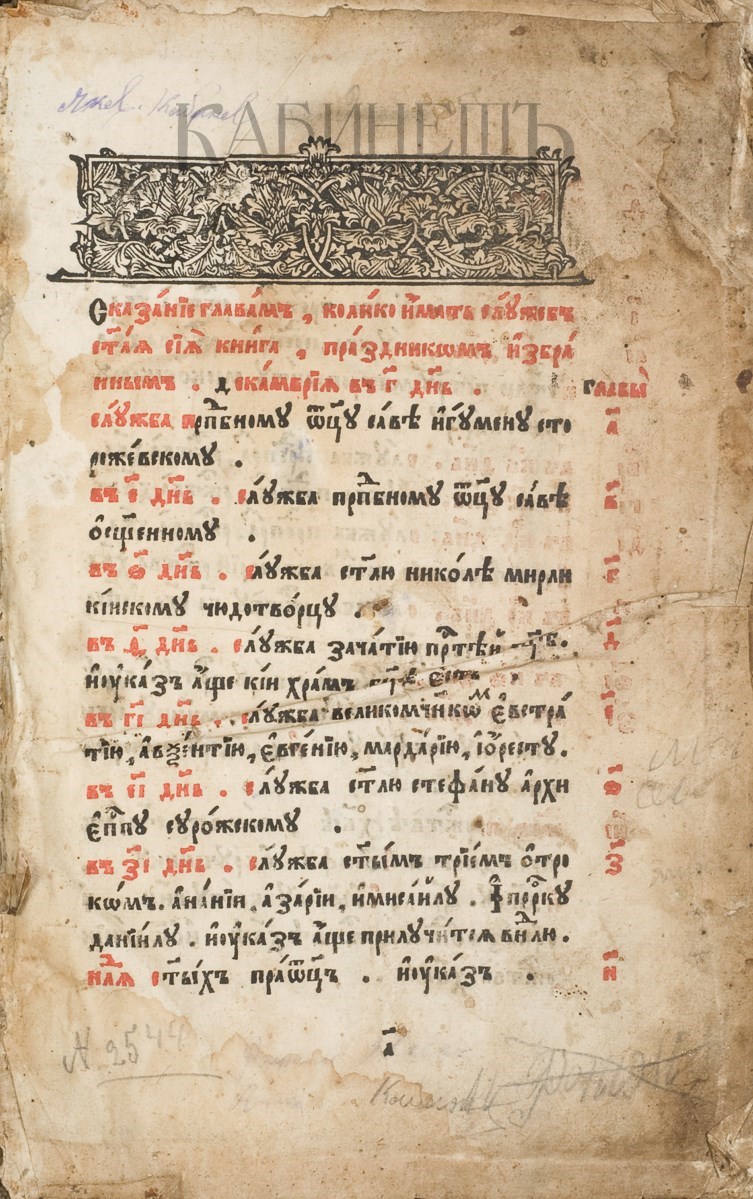 КАБИНЕТЪ
Сказа́нїе глава́мъ, коли́ко и҆́мать слу́жебъ
ст҃а́ѧ сїѧ̀ кни́га, пра́здникѡмъ и҆збра́
ннымъ. дека́мврїѧ въ г҃ дн҃ь. главы̀
слу́жба прпⷣбному ѻ҆ц҃у са́вѣ и҆гу́мену сто а҃
роже́вскому.
въ е҃ дн҃ь. слу́жба прпⷣбному ѻ҆ц҃у са́вѣ в҃
ѡ҆сщ҃е́нному.
въ ѕ҃ дн҃ь. слу́жба ст҃лю нико́лѣ мирли г҃
кі́йскому чюдотво́рцу.
въ ѳ҃ дн҃ь. слу́жба зача́тїю прⷭ҇тѣ́й д҃
и҆ ᲂу҆ка́зъ а҆́ще кі́и хра́мъ є҆сть.
въ г҃і дн҃ь. слу́жба великомч҃нкѡⷨ є҆встра́ е҃
тїю, а҆ѵѯе́нтїю, є҆вге́нїю, марда́рїю, і҆ѻре́сту.
въ е҃і дн҃ь. слу́жба ст҃лю стефа́ну а҆рхи ѕ҃
є҆пⷭ҇пу суро́жскому.
въ з҃і дн҃ь. слу́жба ст҃ы́мъ трїе́мъ ѻ҆тро з҃
кѡ́мъ. а҆на́нїи, а҆за́рїи, и҆ мисаи́лу. и҆ прⷪ҇рку
данїи́лу. и҆ ᲂу҆ка́зъ а҆́ще прилучи́тсѧ в нлⷣю.
нлⷣѧ ст҃ы́хъ пра́ѻц҃ъ. и҆ ᲂу҆ка́зъ. и҃
а҃
№ 2544